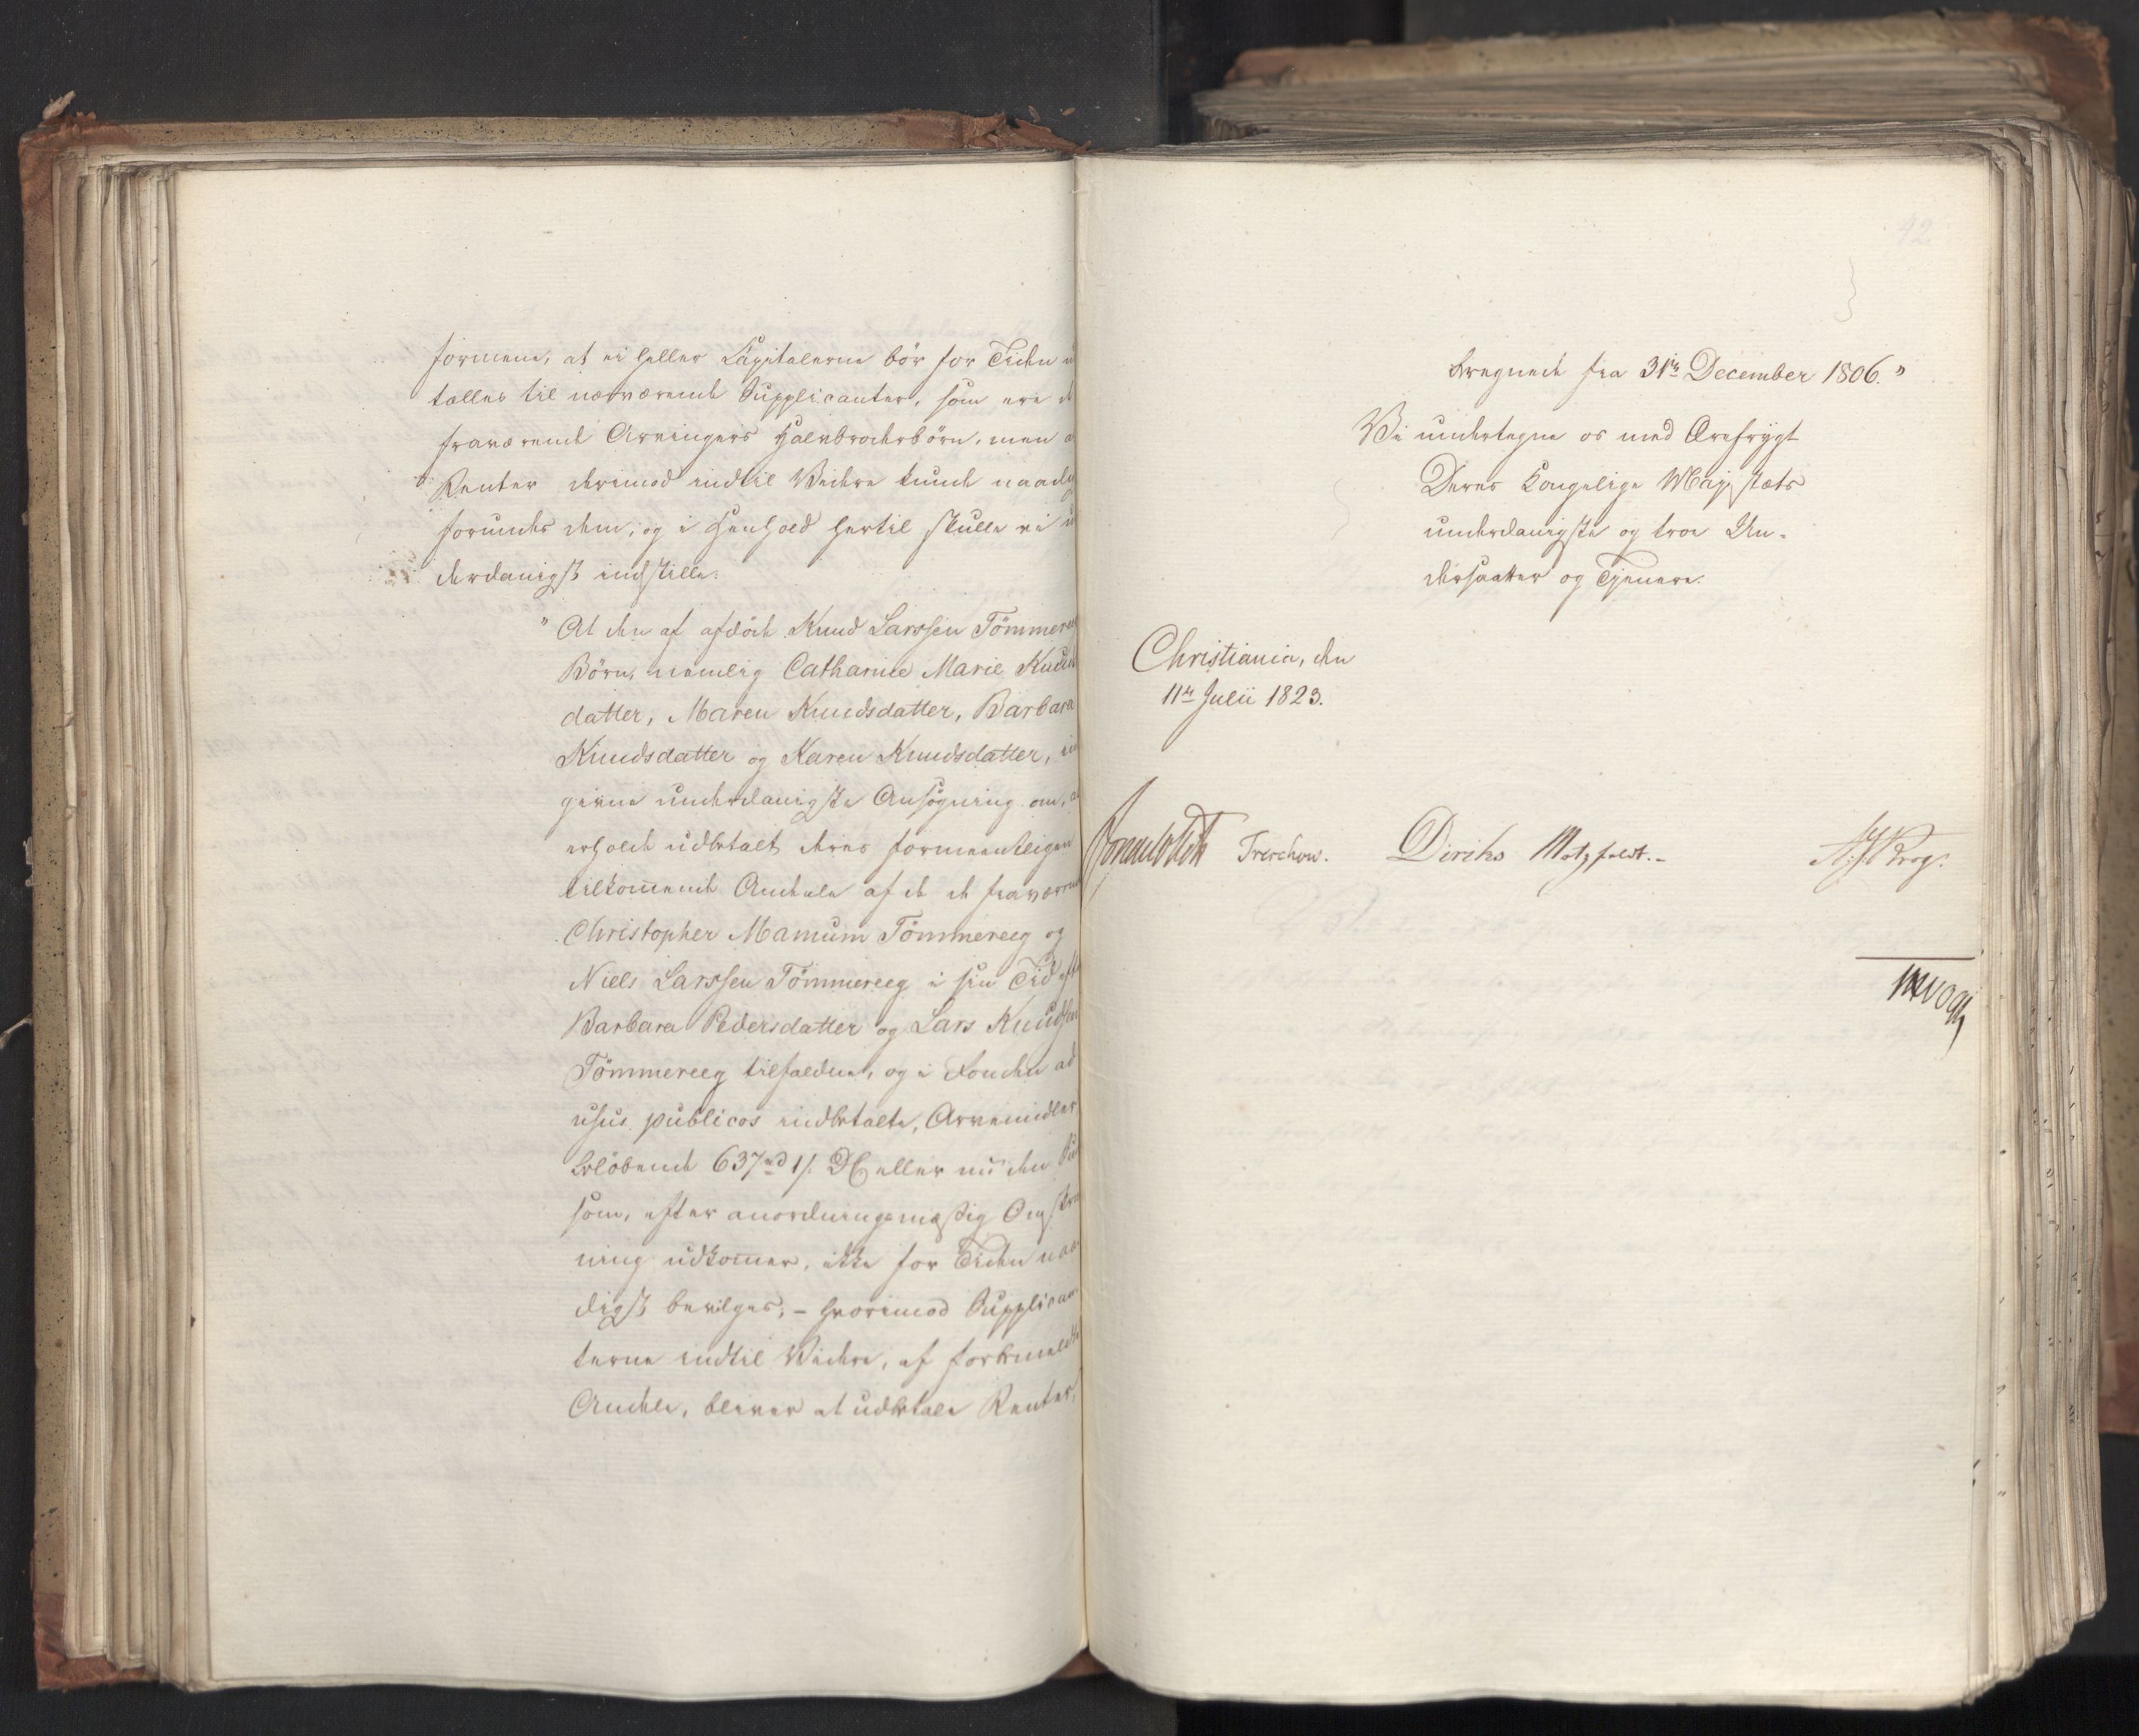 formene, at ei heller Capitalerne bör for Tiden
tælles til nærværende Supplicanter, som ere
fraværende Arvingers Halvbroderbörn, men
Renter derimod indtil Videre kunde naadig
forundes dem; og i Henhold hertil skulle vi
derdanigst indstille:
"At den af afdöde Knud Larssen Tömmereeg
Börn, nemlig Catharine Marie Knuds
datter, Maren Knudsdatter, Barbara
Knudsdatter og Karen Knudsdatter, ind
givne underdanigste Ansögning om, at
erholde udbetalt deres formeentligen
tilkom̅ende Andele af de de fraværende
Christopher Mamum Tömmereeg og
Niels Larssen Tömmereeg i sin Tid efter
Barbara Pedersdatter og Lars Knudsen
Tömmereeg tilfaldne, og i Fonden ad
usus publicos indbetalte, Arvemidler,
belöbende 637 rd 1 s. DC eller nu den Sum
som, efter anordningsmæssig Omskriv
ning udkom̅er, ikke for Tiden naa
digst bevilges; - hvorimod Supplican
terne indtil Videre, af forbemeldte
Andele, bliver at udbetale Renter,
92
beregnede fra 31te December 1806."
Vi undertegne os med Ærefrygt
Deres Kongelige Majestæts
underdanigste og troe Un-
dersaatter og Tjenere.
Christiania, den
11te Julii 1823.
Sommerhielm Treschow. Diriks Motzfeldt.- Krog.
Vogt